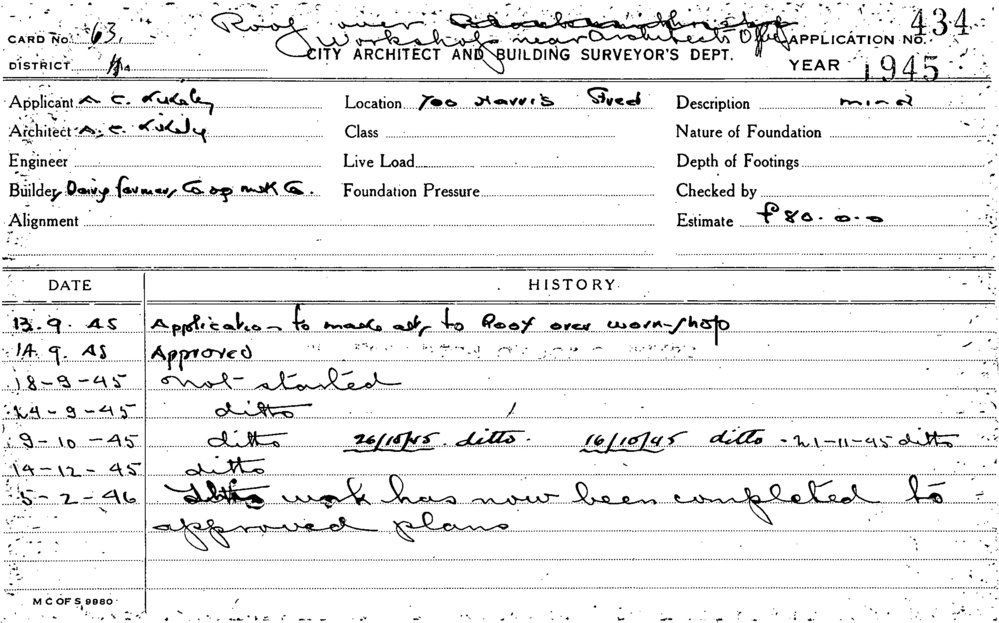 Roof over
Workshop near Architects Office
434
CARD No. 63
CITY ARCHITECT AND BUILDING SURVEYOR'S DEPT.
APPLICATION No.
DISTRICT
YEAR 1945
Applicant A. C.
Location 700 Harris Street
Description minor
Architect A. C.
Class
Nature of Foundation
Engineer
Live Load
Depth of Footings
Builder Dairy farmers Co op milk Co.
Foundation Pressure
Checked by
Alignment
Estimate £80.0.0
DATE
HISTORY
13.9.45 Application to make alts to Roof over work-shop
14.9.45 Approved
18-9-45 not started
24-9-45 ditto
9-10-45 ditto 26/10/45 ditto. 16/10/45 ditto - 21-11-45 ditto
14-12-45 ditto
5-2-46 work has now been completed to
approved plans
M C OF S 9980